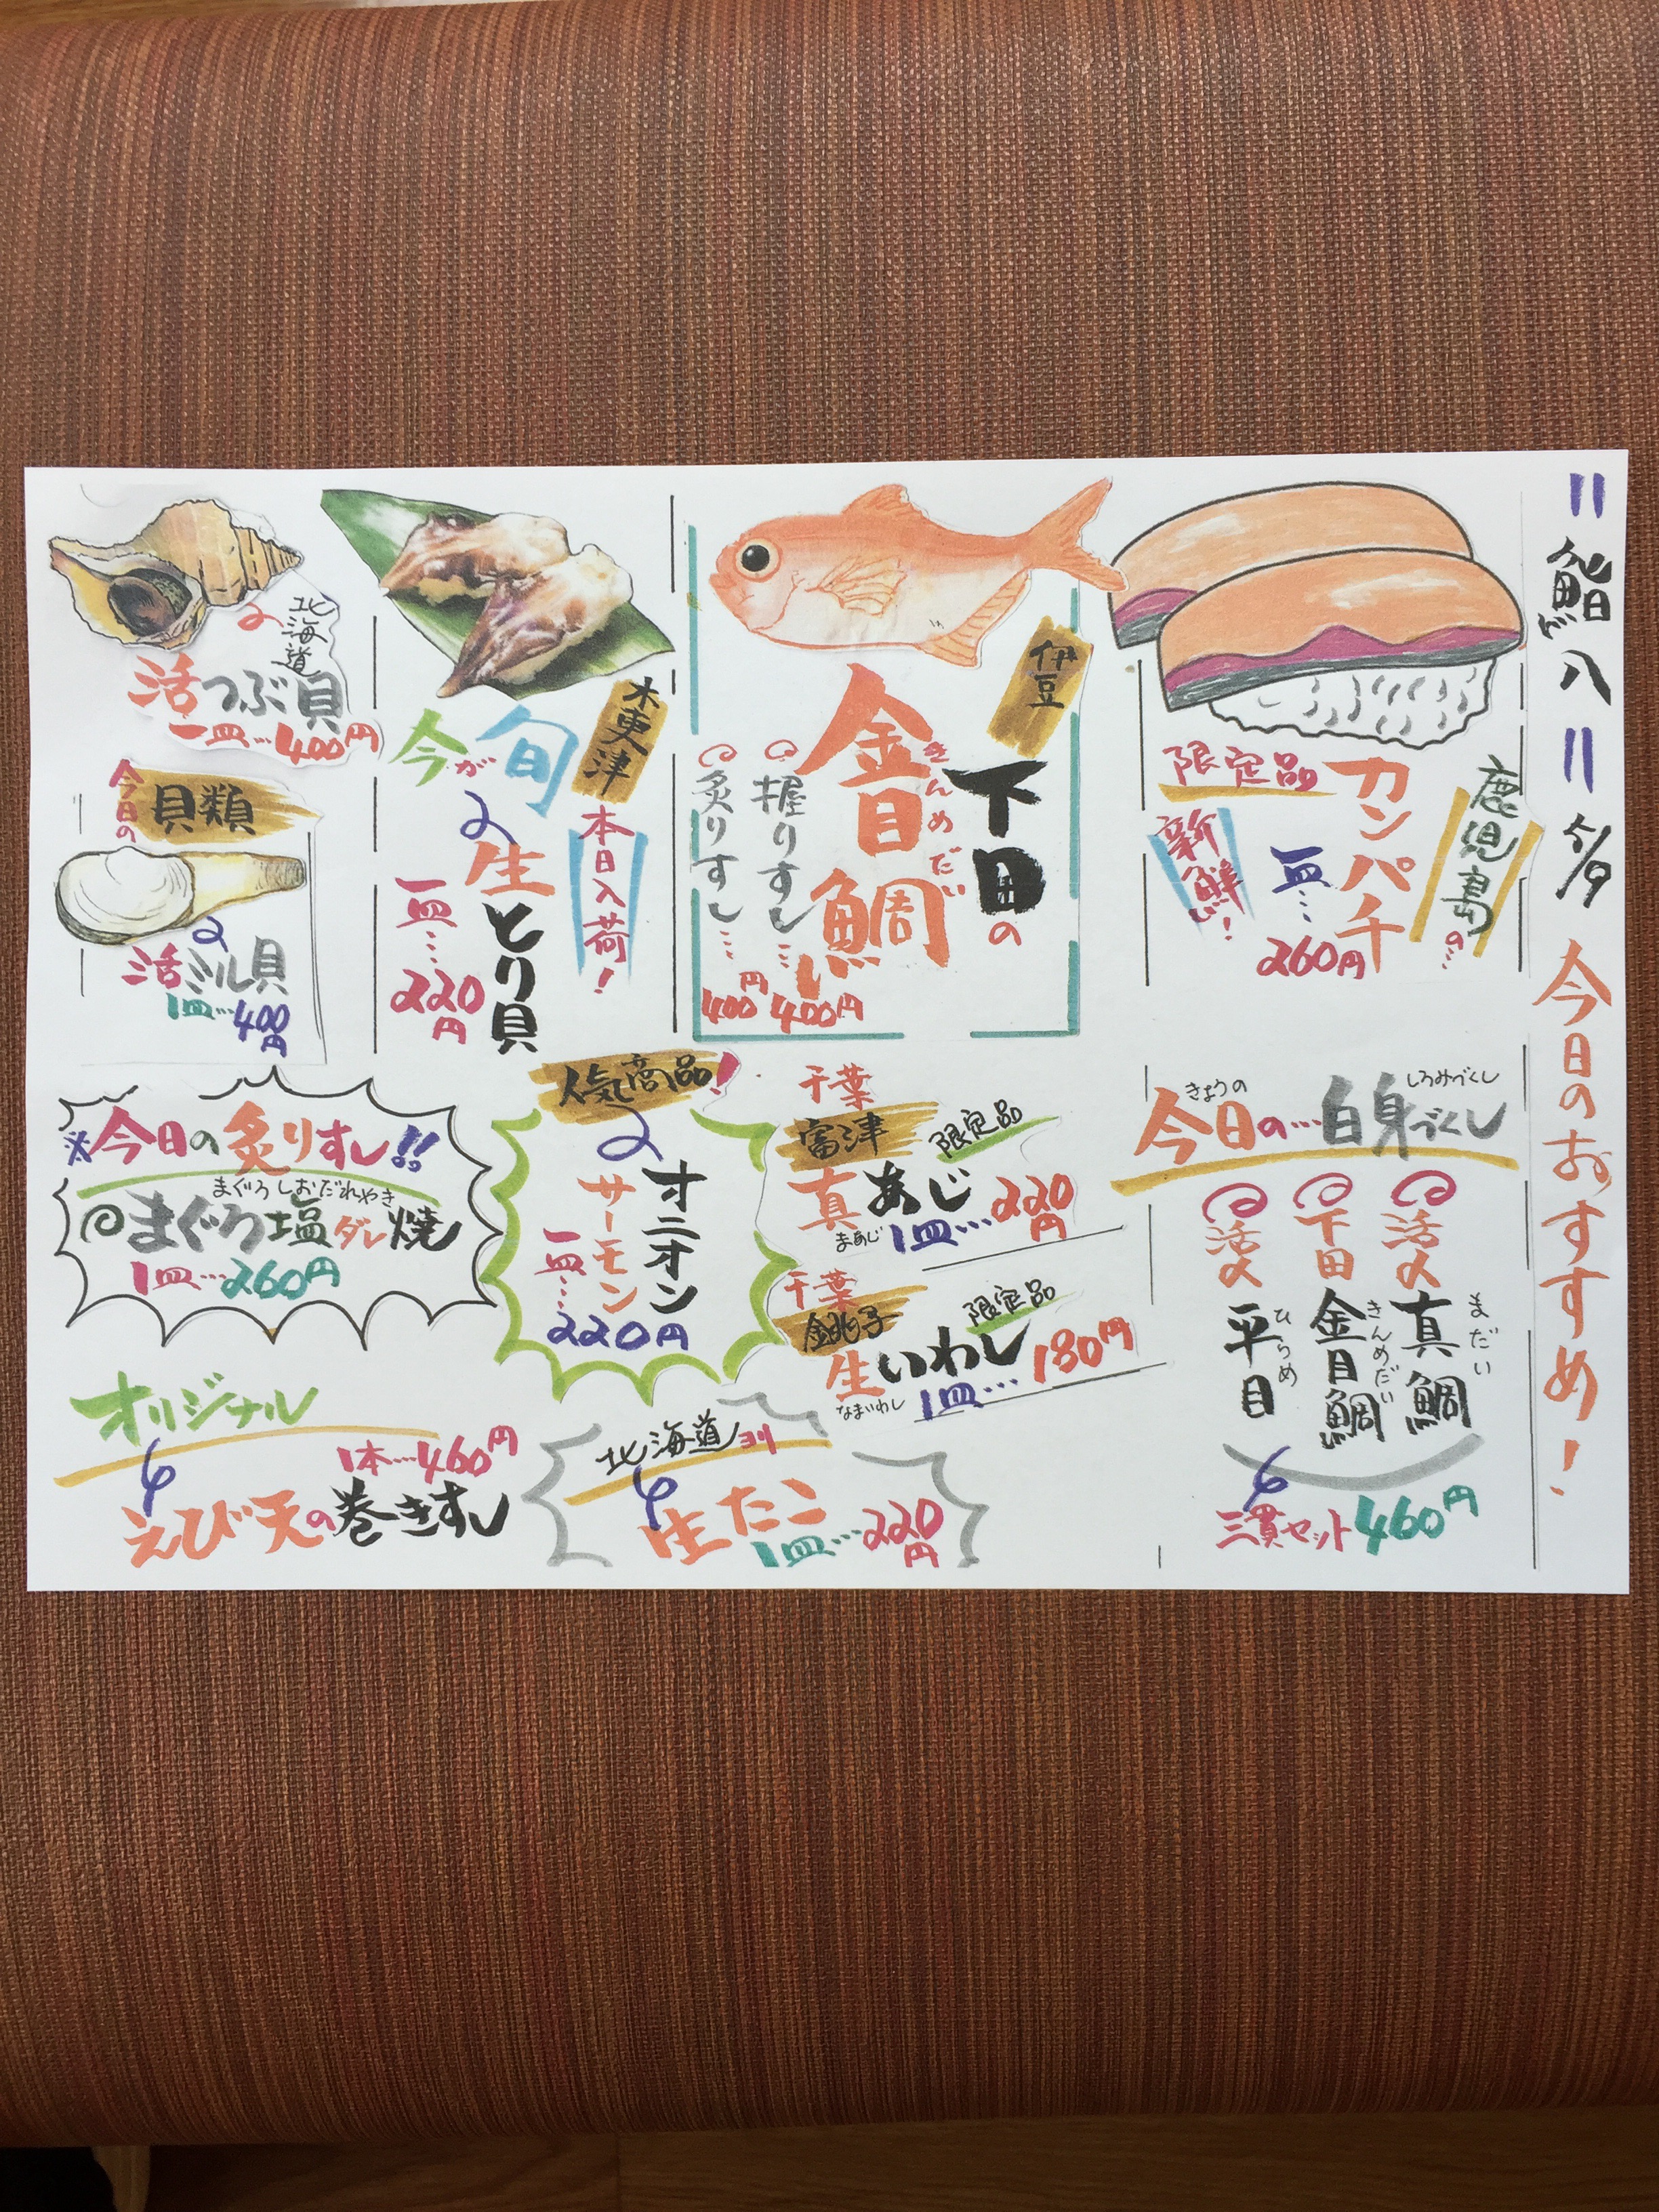 〃鮨八〃 5/9 今日のおすすめ!
鹿児島の…
カンパチ
限定品
一皿…
260円
新鮮!
伊豆
下田の
きんめだい
金目鯛
握りすし…400円
炙りすし…400円
木更津
本日入荷!
今が旬
生とり貝
一皿…220円
北海道
活つぶ貝
一皿…400円
今日の
貝類
活ミル貝
1皿…400円
きょうの しろみづくし
今日の…白身づくし
活〆 真鯛 まだい
下田 金目鯛 きんめだい
活〆 平目 ひらめ
三貫セット460円
千葉
富津 限定品
真あじ
まあじ
1皿…220円
千葉
銚子 限定品
生いわし
なまいわし
1皿…180円
人気商品!
オニオン
サーモン
一皿…
220円
※今日の炙りすし!!
まぐろしおだれやき
まぐろ塩ダレ焼
1皿…260円
オリジナル
1本…460円
えび天の巻きすし
北海道ヨリ
生たこ
1皿…220円